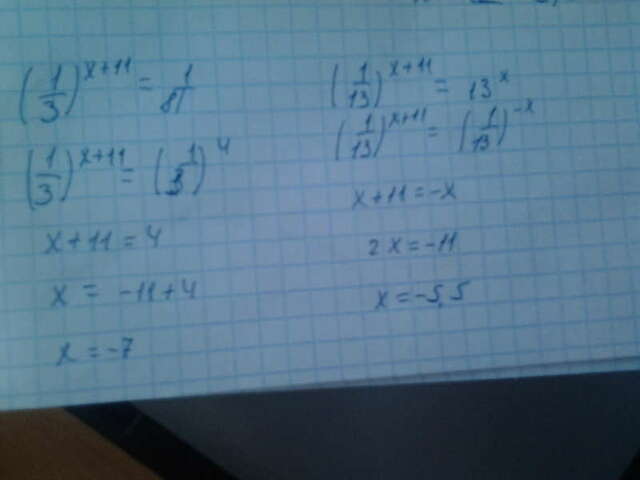 (1/3)^(x+11) = 1/81
(1/3)^(x+11) = (1/3)^4
x+11=4
x = -11+4
x = -7
(1/13)^(x+11) = 13^x
(1/13)^(x+11) = (1/13)^(-x)
x+11=-x
2x=-11
x=-5,5